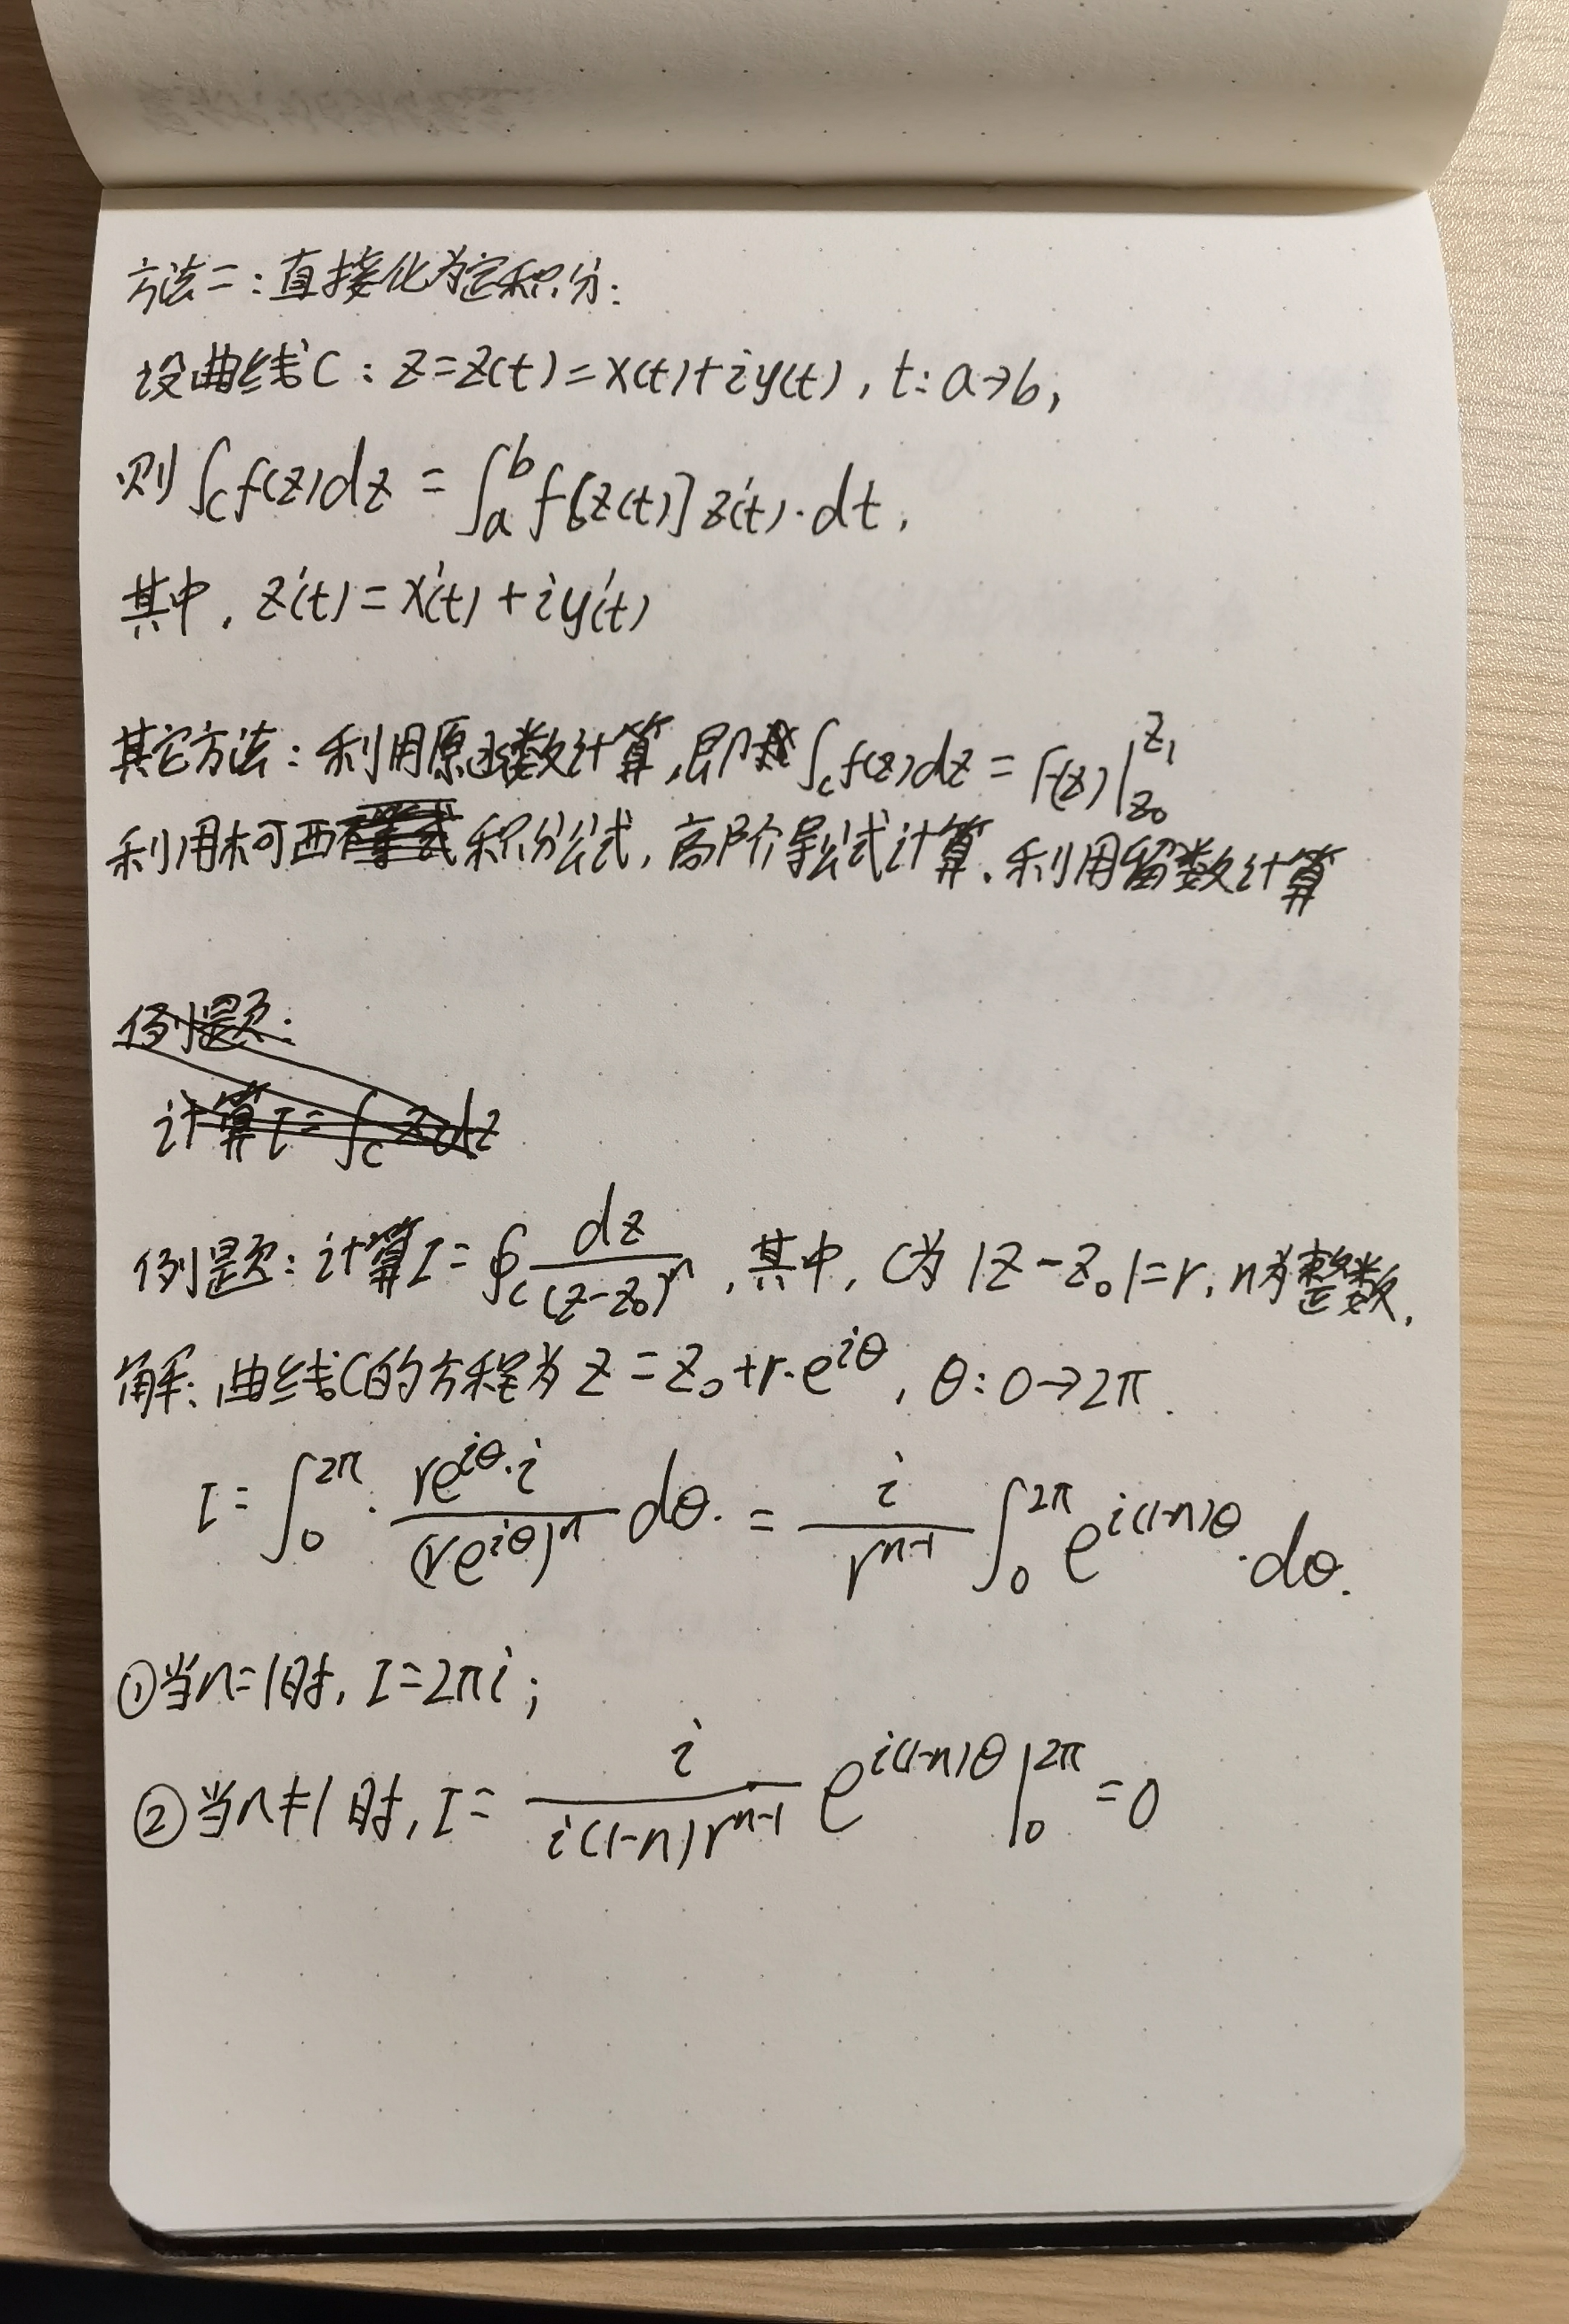 方法二：直接化为定积分：
设曲线C：z=z(t)=x(t)+iy(t)，t：a→b，
则∫_C f(z)dz = ∫_a^b f[z(t)]z'(t)·dt，
其中，z'(t)=x'(t)+iy'(t)
其它方法：利用原函数计算，即∫_C f(z)dz = F(z)|_{z_0}^{z_1}
利用柯西积分公式，高阶导公式计算．利用留数计算
例题：
计算I=∫_C z dz
例题：计算I=∮_C dz/(z-z_0)^n，其中，C为|z-z_0|=r，n为整数．
解：曲线C的方程为z=z_0+r·e^{iθ}，θ：0→2π．
I=∫_0^{2π}·re^{iθ}·i/(re^{iθ})^n dθ·= i/r^{n-1} ∫_0^{2π} e^{i(1-n)θ}·dθ．
①当n=1时，I=2πi；
②当n≠1时，I= i/(i(1-n)r^{n-1}) e^{i(1-n)θ}|_0^{2π}=0